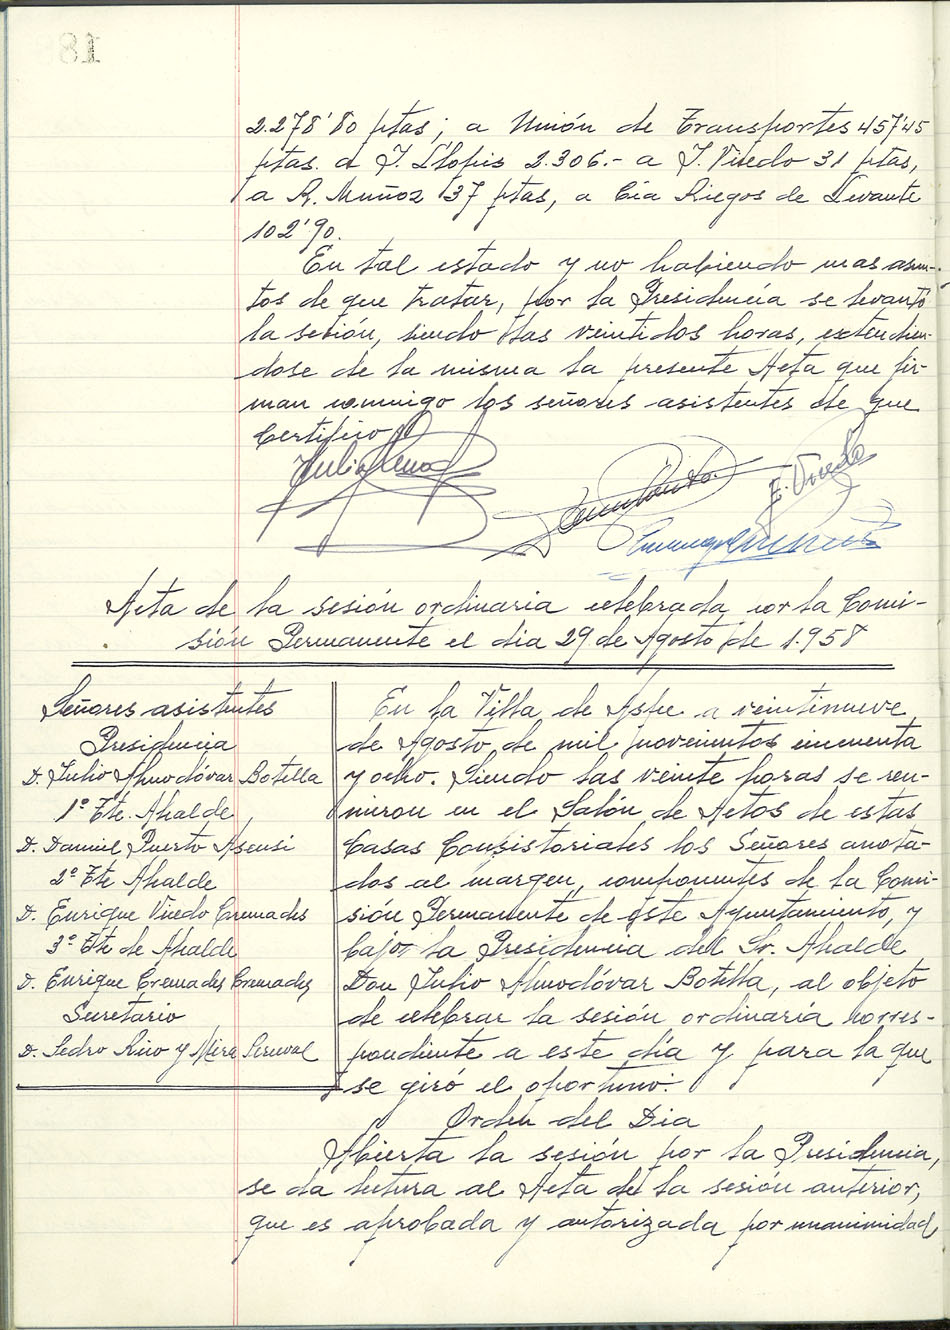 2.278'80 ptas; a Unión de Transportes 457'45
ptas. a J. Llopis 2.306.- a J. Vicedo 31 ptas,
a R. Muñoz 137 ptas, a Cía Riegos de Levante
102'90.
En tal estado y no habiendo mas asun-
tos de que tratar, por la Presidencia se levantó
la sesión, siendo las veintidos horas, extendien-
dose de la misma la presente Acta que fir-
man conmigo los señores asistentes de que
Certifico
E. Vicedo
Acta de la sesión ordinaria celebrada por la Comi-
sión Permanente el dia 29 de Agosto de 1.958
Señores asistentes
Presidencia
D. Julio Almodóvar Botella
1º Tte. Alcalde
D. Daniel Puerto Asensi
2º Tte Alcalde
D. Enrique Vicedo Cremades
3º Tte de Alcalde
D. Enrique Cremades Cremades
Secretario
D. Pedro Rico y Mira Perceval
En la Villa de Aspe a veintinueve
de Agosto de mil novecientos cincuenta
y ocho. Siendo las veinte horas se reu-
nieron en el Salón de Actos de estas
Casas Consistoriales los Señores anota-
dos al margen, componentes de la Comi-
sión Permanente de este Ayuntamiento, y
bajo la Presidencia del Sr. Alcalde
Don Julio Almodóvar Botella, al objeto
de celebrar la sesión ordinaria corres-
pondiente a este día y para la que
se giró el oportuno:
Orden del Dia
Abierta la sesión por la Presidencia,
se da lectura al Acta de la sesión anterior,
que es aprobada y autorizada por unanimidad,